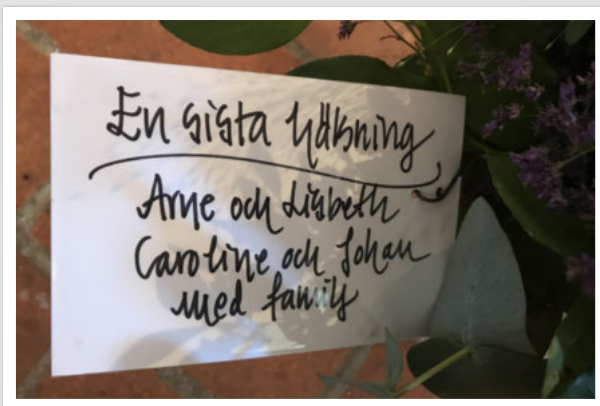 En sista hälsning
Arne och Lisbeth
Caroline och Johan
med familj